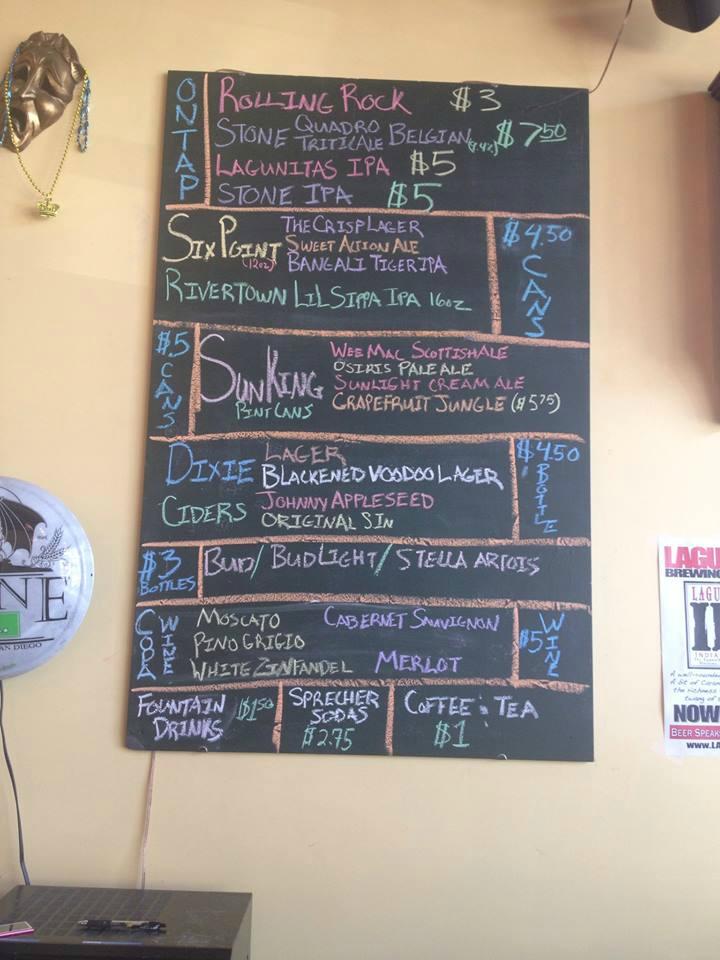 ON TAP
ROLLING ROCK $3
STONE QUADRO TRITICALE BELGIAN (9.4%) $7.50
LAGUNITAS IPA $5
STONE IPA $5
SIXPOINT (12oz)
THE CRISP LAGER
SWEET ACTION ALE
BANGALI TIGER IPA
RIVERTOWN LIL SIPPA IPA 16oz
$4.50 CANS
$5 CANS
SUN KING
PINT CANS
WEE MAC SCOTTISH ALE
OSIRIS PALE ALE
SUNLIGHT CREAM ALE
GRAPEFRUIT JUNGLE ($5.75)
DIXIE
LAGER
BLACKENED VOODOO LAGER
CIDERS
JOHNNY APPLESEED
ORIGINAL SIN
$4.50 BOTTLE
$3 BOTTLES
BUD/BUDLIGHT/STELLA ARTOIS
WINE
MOSCATO
PINO GRIGIO
WHITE ZINFANDEL
CABERNET SAUVIGNON
MERLOT
$5 WINE
FOUNTAIN DRINKS $1.50
SPRECHER SODAS
$2.75
COFFEE & TEA
$1
NE
AN DIEGO
LAGU
BREWING
LAGU
INDIA
A well-rounde
A bit of Caram
the richness
twang of
NOW
BEER SPEAK
WWW.LA